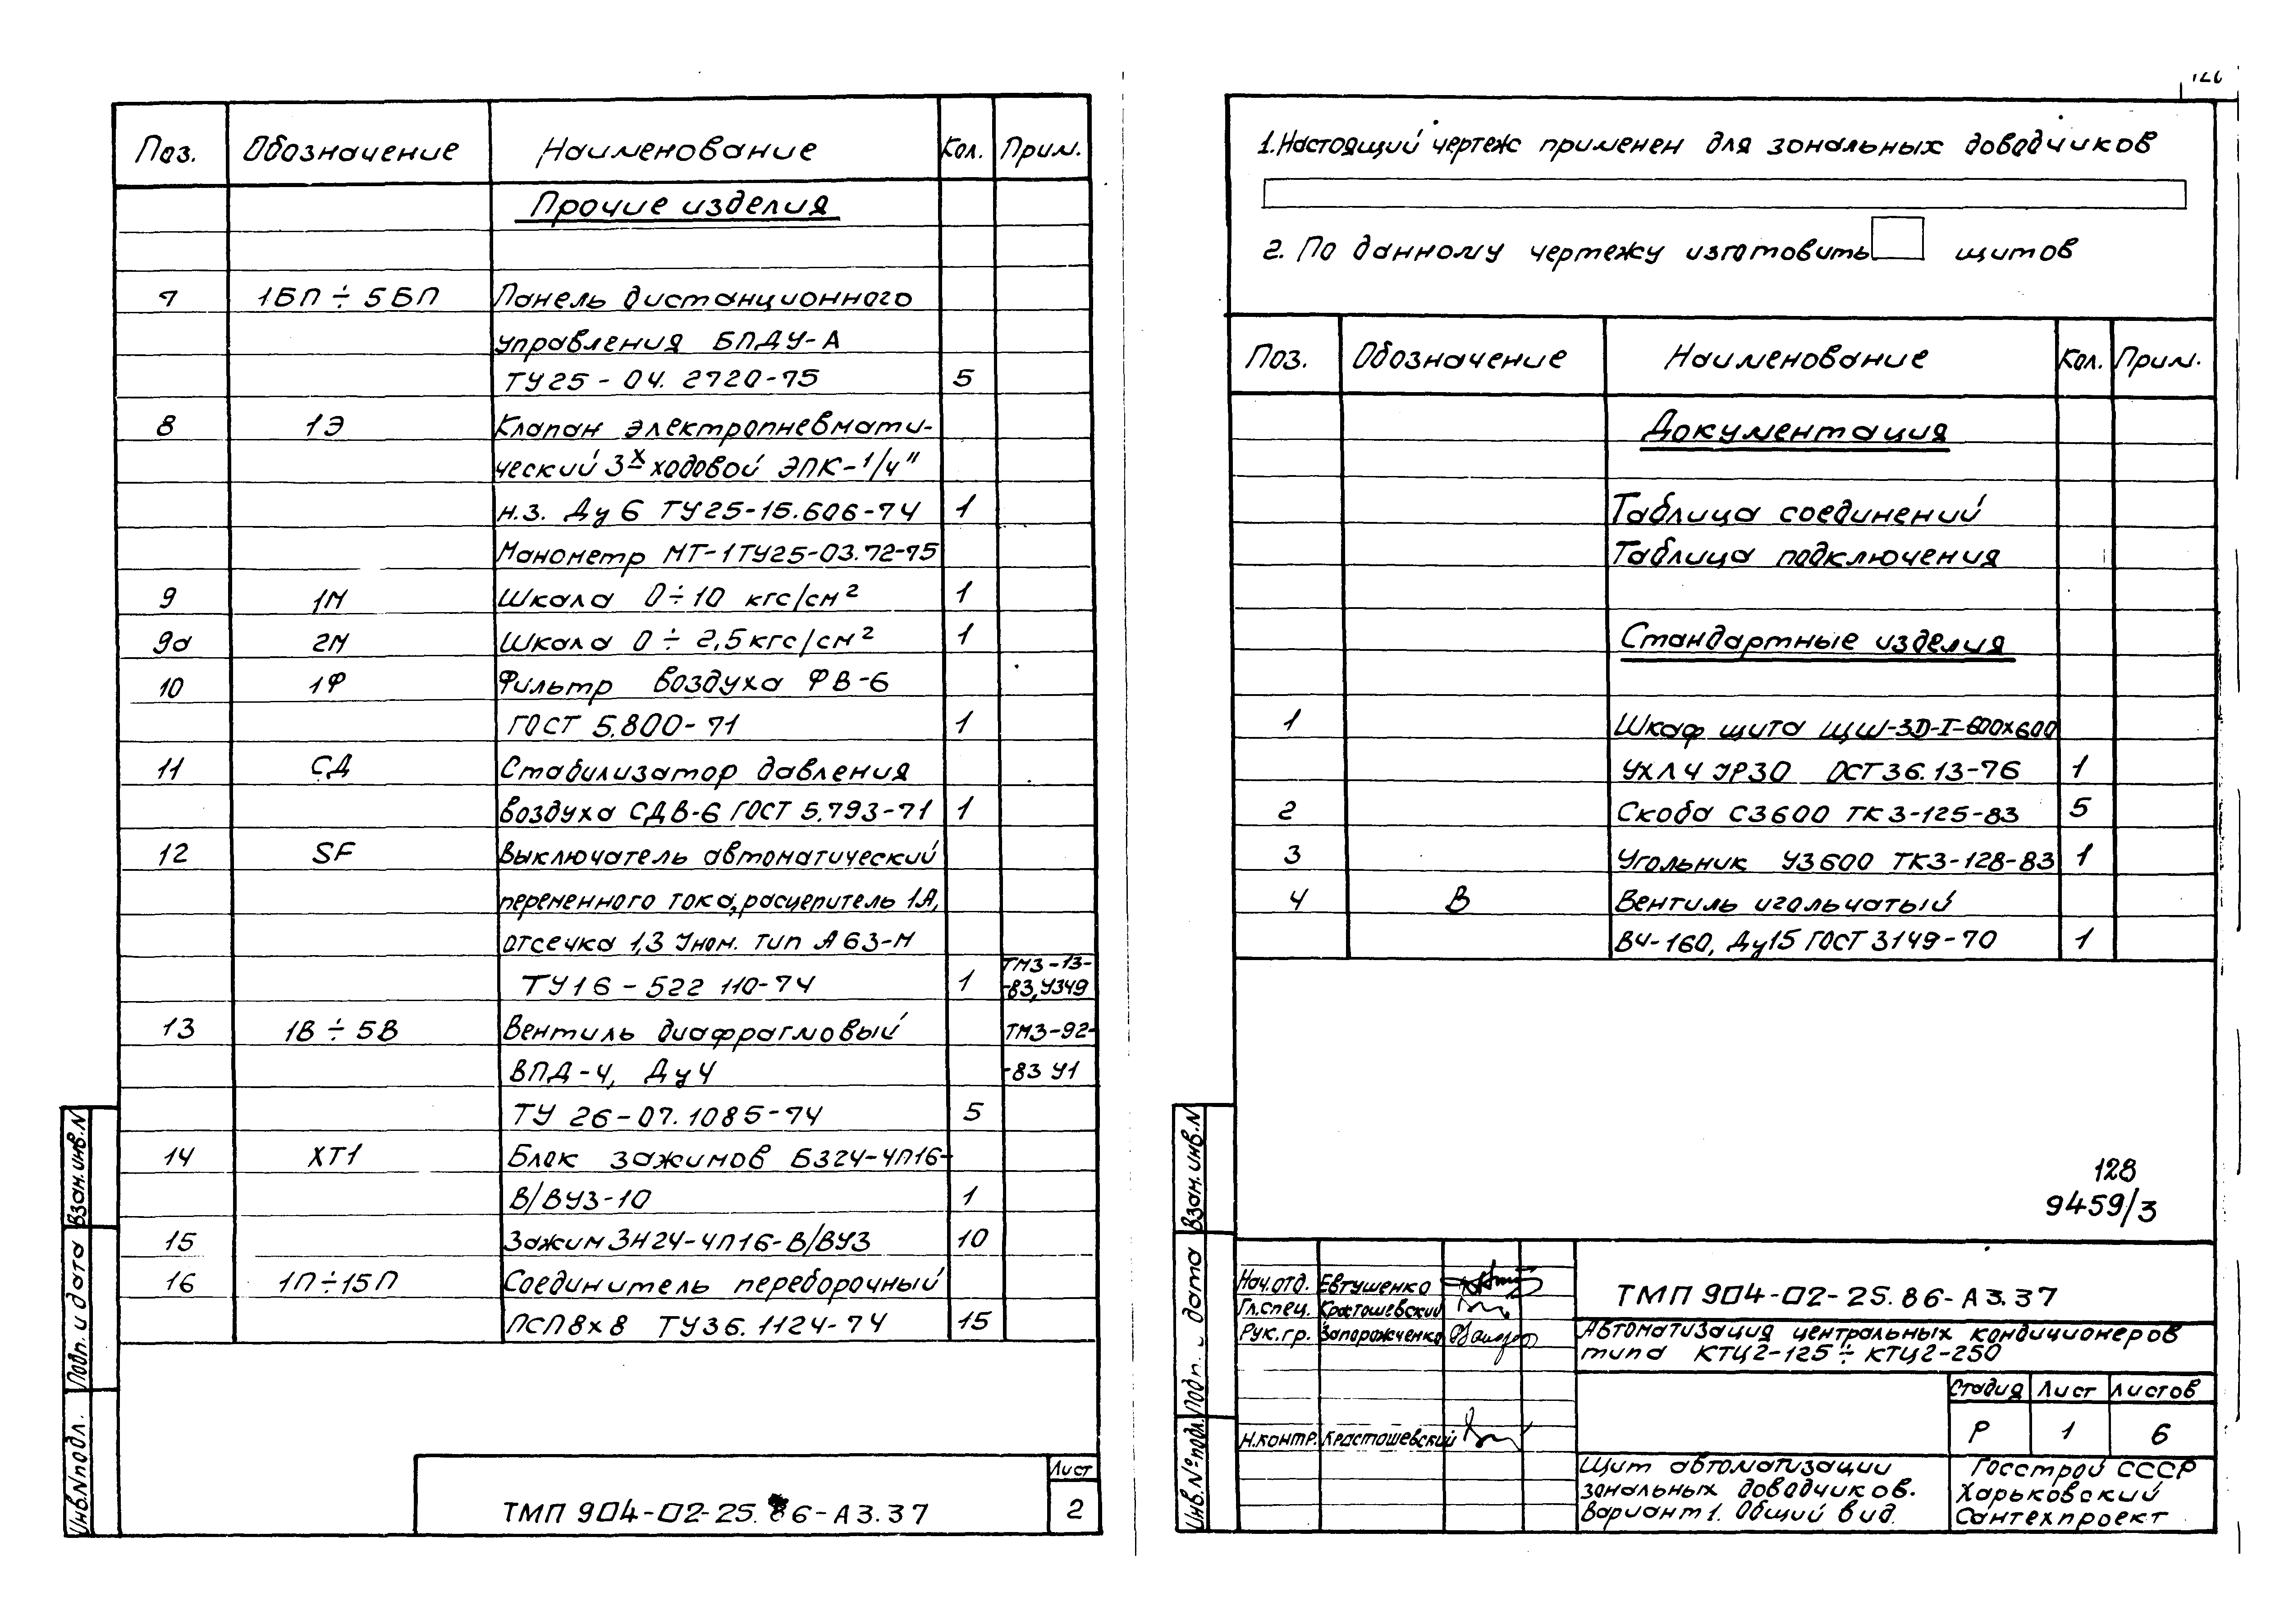 Поз. Обозначение Наименование Кол. Прим.
Прочие изделия
7 1БП ÷ 5БП Панель дистанционного
управления БПДУ-А
ТУ25-04. 2720-75 5
8 1Э Клапан электропневмати-
ческий 3х ходовой ЭПК-1/4"
н.з. Ду 6 ТУ25-15.606-74 1
Манометр МТ-1ТУ25-03.72-75
9 1М Шкала 0÷10 кгс/см² 1
9а 2М Шкала 0 ÷ 2,5 кгс/см² 1
10 1Ф Фильтр воздуха ФВ-6
ГОСТ 5.800-71 1
11 СД Стабилизатор давления
воздуха СДВ-6 ГОСТ 5.793-71 1
12 SF Выключатель автоматический
переменного тока, расцепитель 1А,
отсечка 1,3 Iном. тип А63-М
ТУ16-522 110-74 1 ТМ3-13-
-83, У349
13 1В ÷ 5В Вентиль диафрагмовый ТМ3-92-
ВПД-4, Ду4 -83 У1
ТУ 26-07.1085-74 5
14 ХТ1 Блок зажимов БЗ24-4П16-
В/ВУ3-10 1
15 Зажим ЗН24-4П16-В/ВУ3 10
16 1П÷15П Соединитель переборочный
ПСП8х8 ТУ36.1124-74 15
Взам.инв.N
Подп. и дата
Инв.Nподл.
ТМП 904-02-25.86-А3.37
Лист
2
1.Настоящий чертеж применен для зональных доводчиков
2. По данному чертежу изготовить щитов
Поз. Обозначение Наименование Кол. Прим.
Документация
Таблица соединений
Таблица подключения
Стандартные изделия
1 Шкаф щита ЩШ-ЗД-I-600х600
УХЛ4 IP30 ОСТ36.13-76 1
2 Скоба С3600 ТК3-125-83 5
3 Угольник У3600 ТК3-128-83 1
4 В Вентиль игольчатый
ВЧ-160, Ду15 ГОСТ 3149-70 1
128
9459/3
Взам.инв.N
Подп. и дата
Инв.№подл.
Нач.отд. Евтушенко
Гл.спец. Красташевский
Рук.гр. Запорожченко
Н.контр. Красташевский
ТМП 904-02-25.86-А3.37
Автоматизация центральных кондиционеров
типа КТЦ2-125÷КТЦ2-250
Стадия Лист Листов
Р 1 6
Щит автоматизации
зональных доводчиков.
Вариант 1. Общий вид.
Госстрой СССР
Харьковский
Сантехпроект